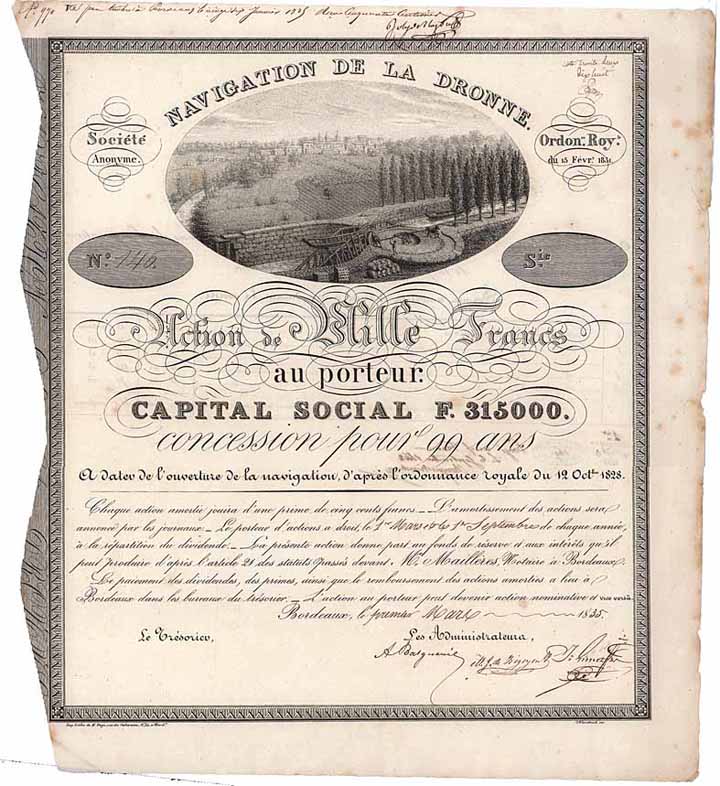 NAVIGATION DE LA DRONNE.
Société
Anonyme.
Ordon.ce Roy.le
du 15 Févr. 1831.
N.o 140.
S.ie
Action de Mille Francs
au porteur.
CAPITAL SOCIAL F. 315000.
concession pour 99 ans
A dater de l'ouverture de la navigation, d'après l'ordonnance royale du 12 Oct.bre 1828.
Chaque action amortie jouira d'une prime de cinq cents francs. _ L'amortissement des actions sera
annoncé par les journaux _ Le porteur d'actions a droit, le 1er Mars et le 1er Septembre de chaque année,
à la répartition du dividende. _ La présente action donne part au fonds de réserve et aux intérêts qu'il
peut produire d'après l'article 21 des statuts passés devant Me Maillères, Notaire à Bordeaux.
Le paiement des dividendes, des primes, ainsi que le remboursement des actions amorties a lieu à
Bordeaux dans les bureaux du trésorier. _ L'action au porteur peut devenir action nominative et vice versa.
Bordeaux, le premier Mars 1835.
Le Trésorier, Les Administrateurs,